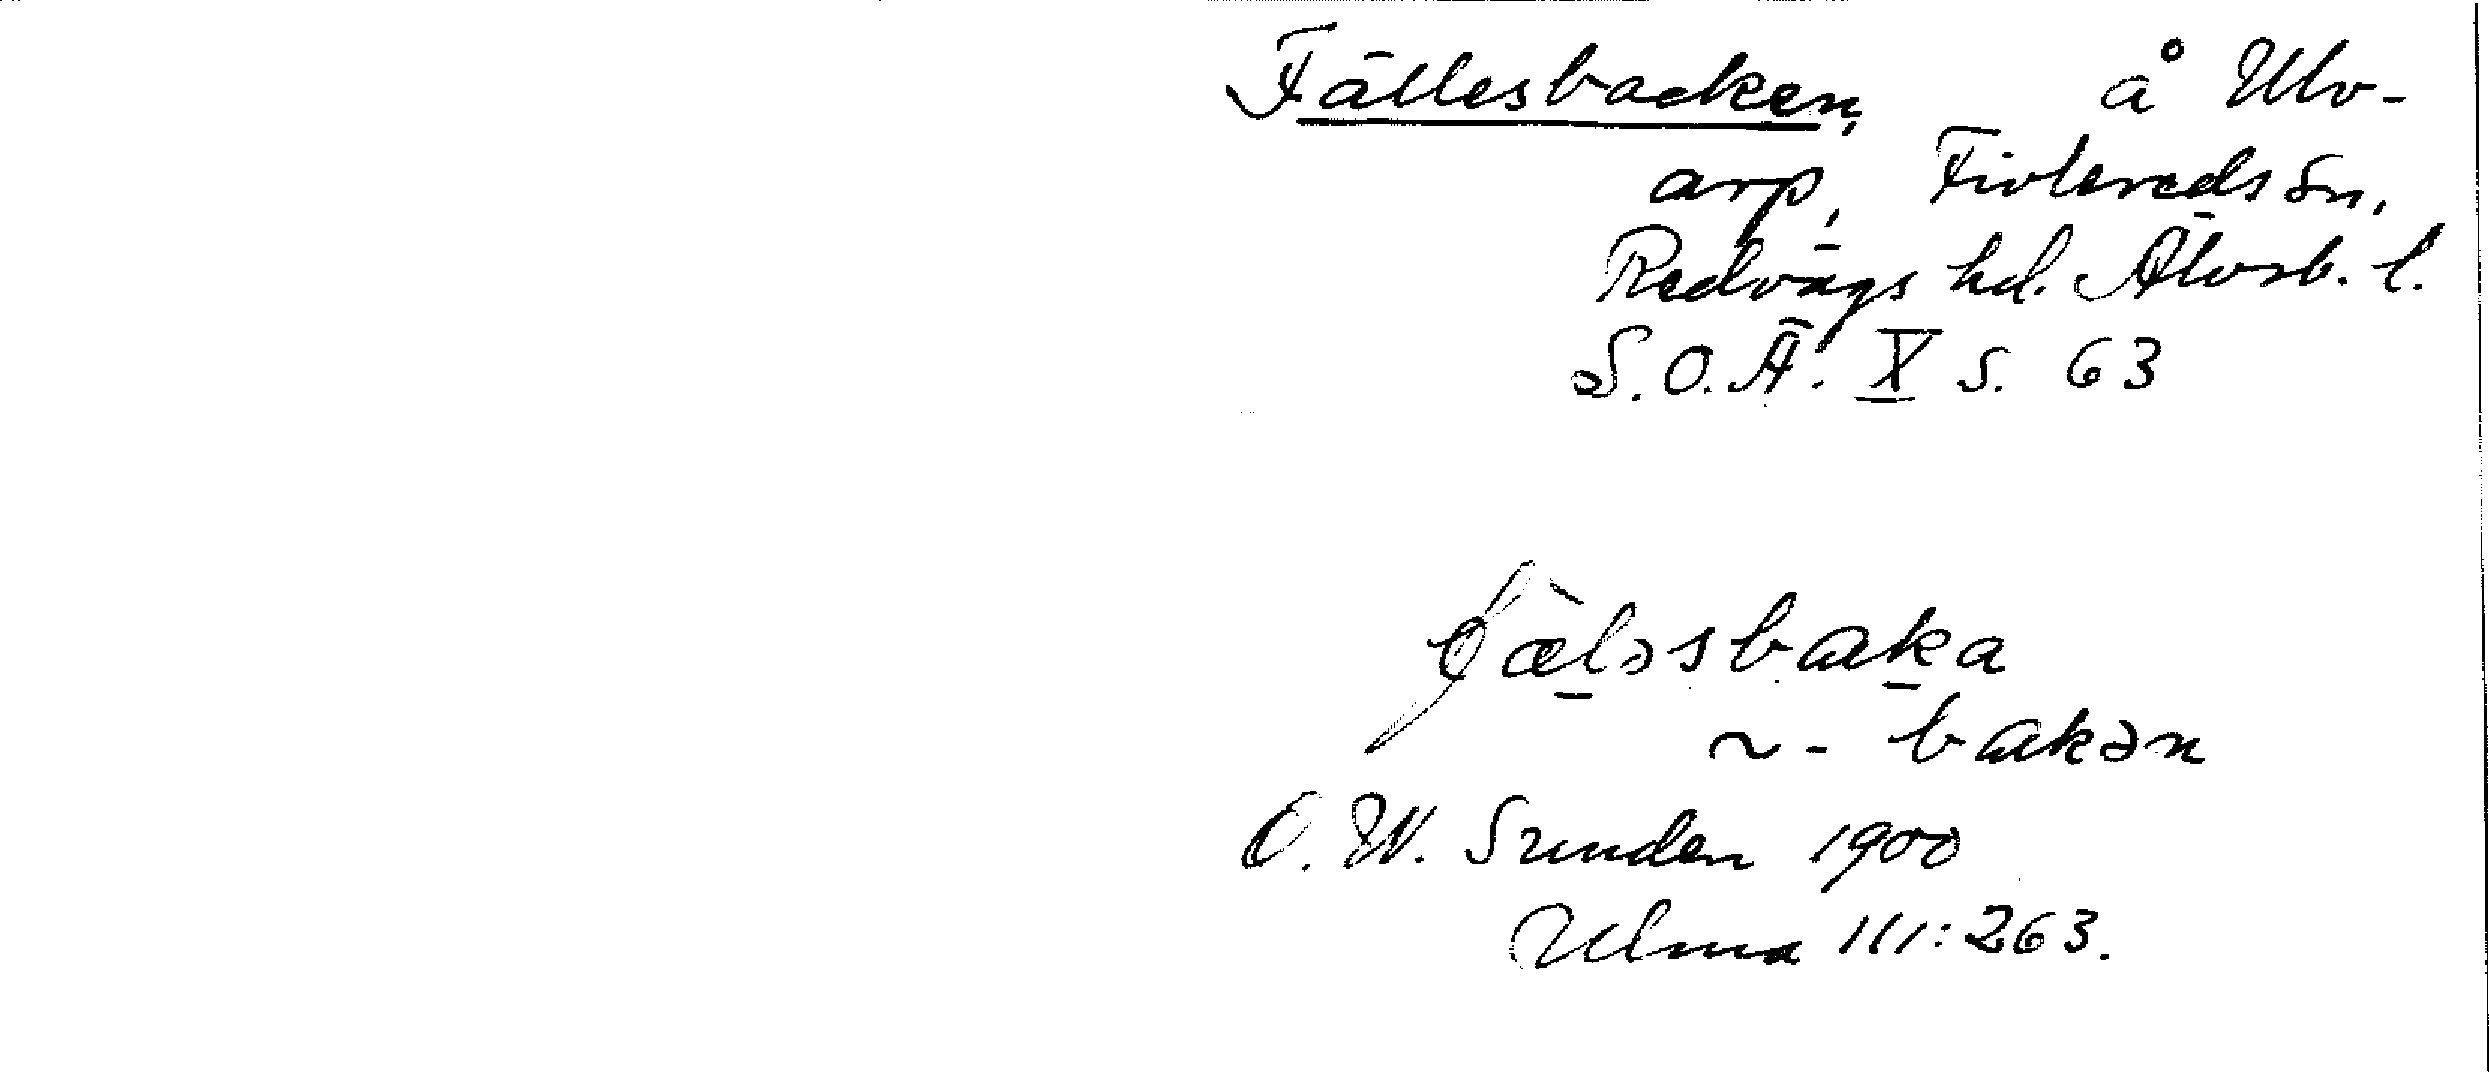 Fällesbacken, å Ulv-
arp, Fivlereds sn,
Redvägs hd. Älvsb. l.
S.O.Ä. X s. 63
fæ̀ləsbaka
~ - bakən
O. W. Sunden 1900
Ulma 111:263.